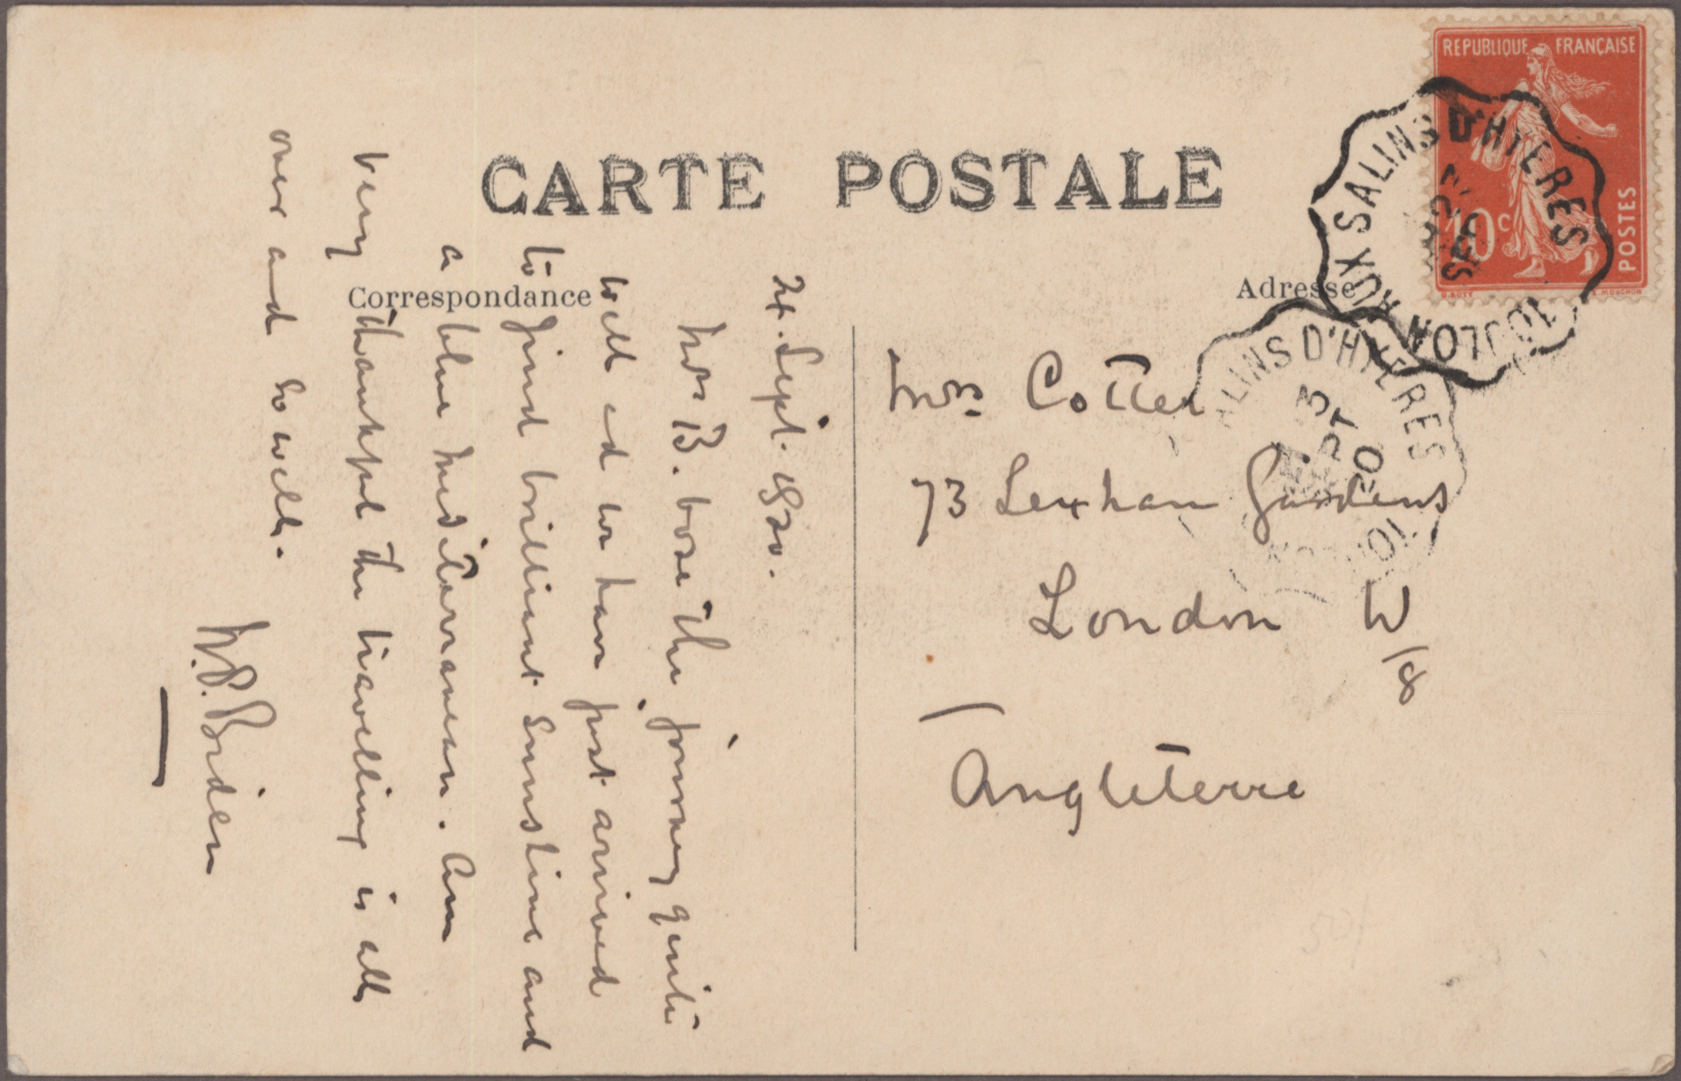 CARTE POSTALE
Correspondance
Adresse
REPUBLIQUE FRANÇAISE
10c
POSTES
SALINS D'HYERES
TOULON AUX
SALINS D'HYERES
Mrs. Cotter
73 Lexham Gardens
London W
/8
Angleterre
24. Sept. 1920.
Mrs B. bore the journey quite
well and we have just arrived
to find brilliant sunshine and
a blue Mediterranean. Am
very thankful the travelling is all
over and so well.